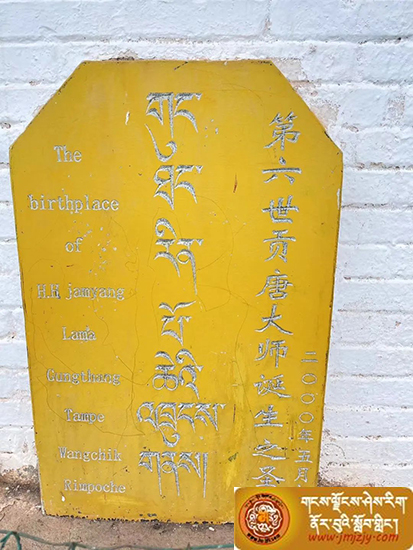 The
birthplace
of
H.H jamyang
Lama
Gungthang
Tampe
Wangchik
Rinpoche
གུང་
ཐང་
རིན་
པོ་
ཆེའི་
འཁྲུངས་
གནས།
第六世贡唐大师诞生之圣
二〇〇〇年五月
གངས་ལྗོངས་ཤེས་རིག
ནོར་བུའི་སློབ་གླིང་།
www.jmjzjy.com